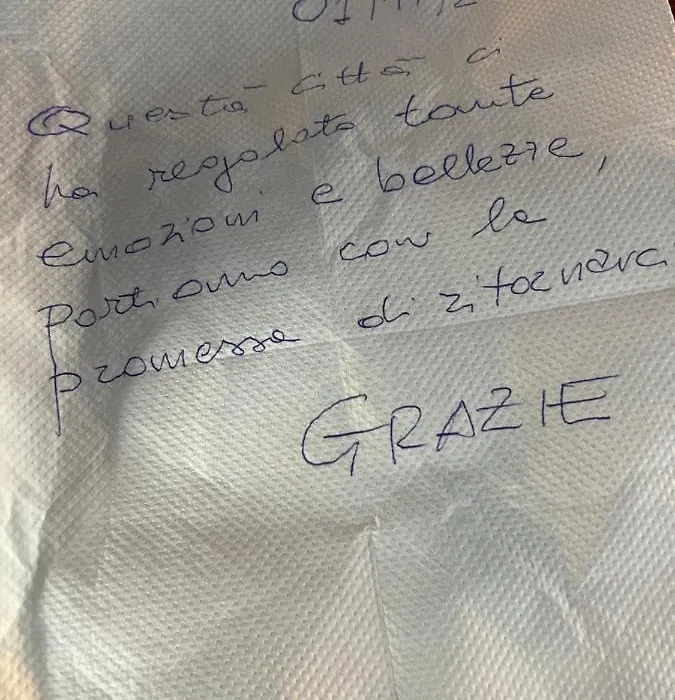 Questa città ci
ha regalato tante
emozioni e bellezze,
Partiamo con la
promessa di ritornarci
GRAZIE